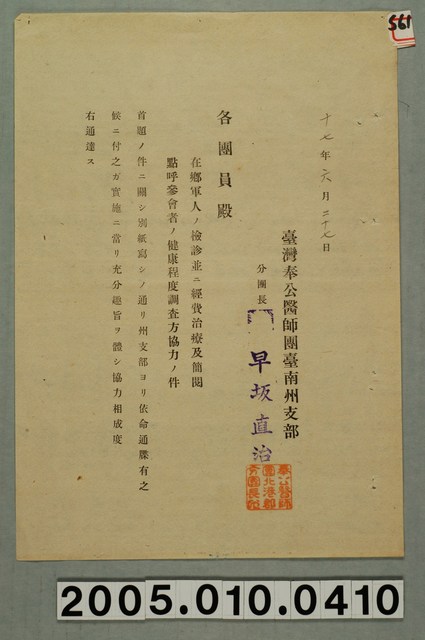 561
十七年六月二十七日
臺灣奉公醫師團臺南州支部
分團長 早坂直治
奉公醫師
團北港郡
分團長印
各團員殿
在鄉軍人ノ檢診並ニ經費治療及簡閱
點呼參會者ノ健康程度調查方協力ノ件
首題ノ件ニ關シ別紙寫シノ通リ州支部ヨリ依命通牒有之
候ニ付之ガ實施ニ當リ充分趣旨ヲ體シ協力相成度
右通達ス
2005.010.0410